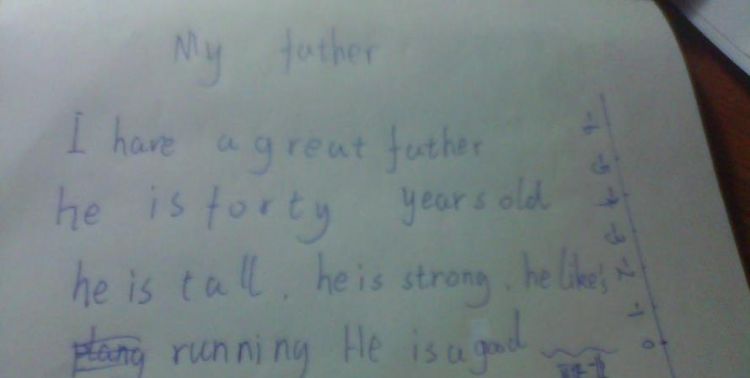 My father
I have a great father
he is forty years old
he is tall. he is strong. he like's
running He is a good
0 1 2 3 4 5